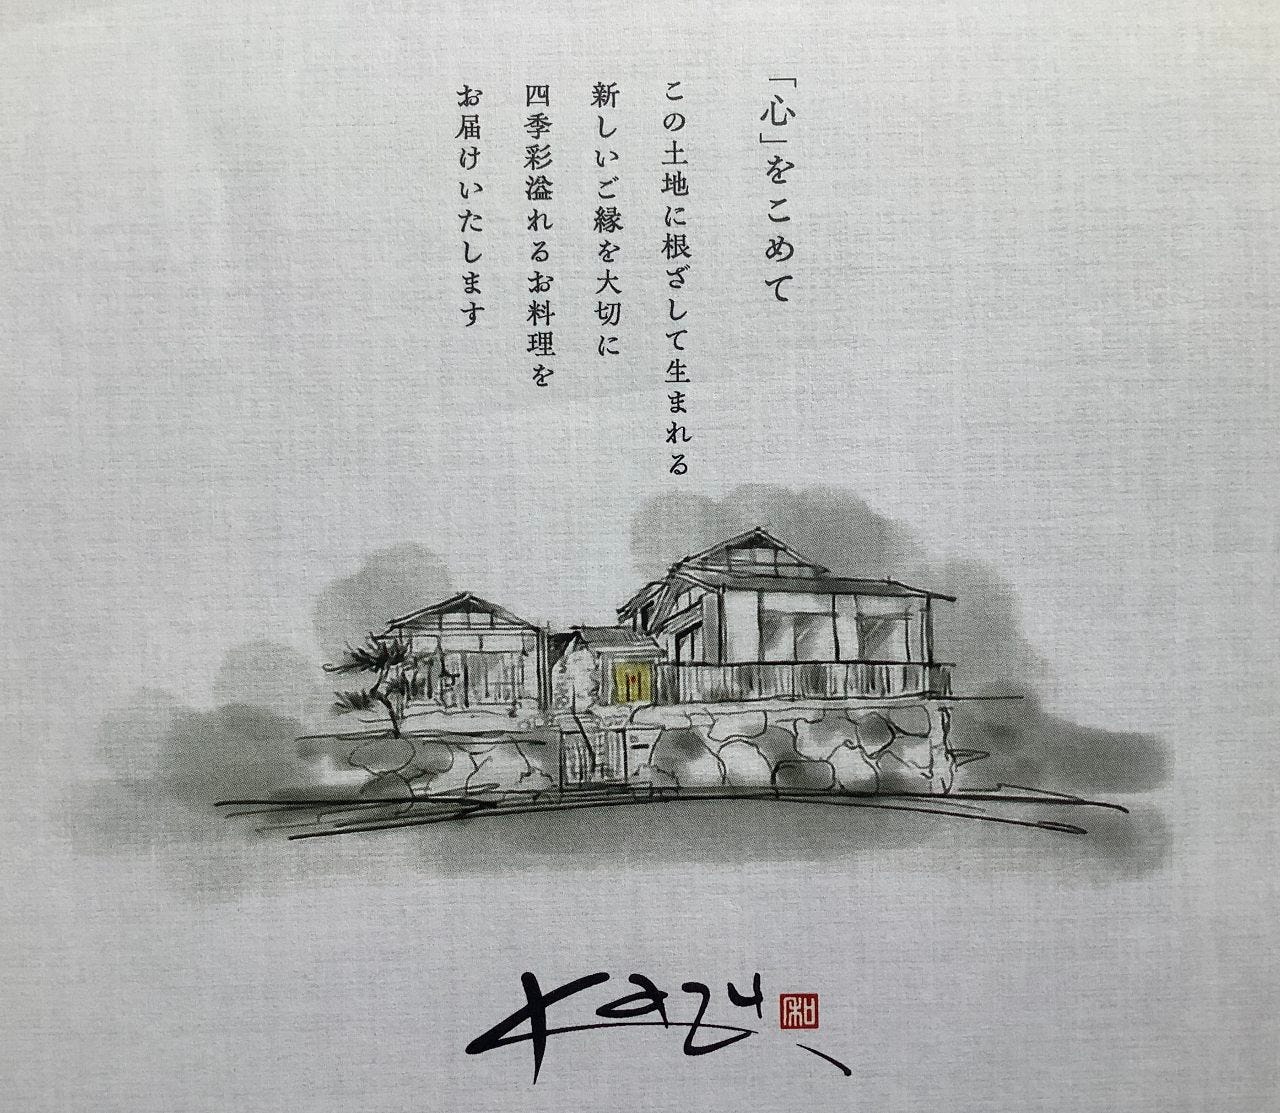 「心」をこめて
この土地に根ざして生まれる
新しいご縁を大切に
四季彩溢れるお料理を
お届けいたします
Kazu
和